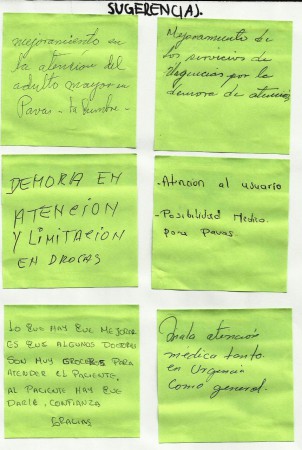 SUGERENCIAS.
mejoramiento en
la atencion del
adulto mayor en
Pavas - la Cumbre -
Mejoramiento de
los servicios de
Urgencias por la
demora de atencion
DEMORA EN
ATENCION
Y LIMITACION
EN DROGAS
-Atencion al usuario
-Posibilidad Medico
para Pavas.
LO QUE HAY QUE MEJORAR
ES QUE ALGUNOS DOCTORES
SON MUY GROCEROS PARA
ATENDER EL PACIENTE,
AL PACIENTE HAY QUE
DARLE CONFIANZA
GRACIAS
Mala atención
médica tanto
en Urgencia
como general.